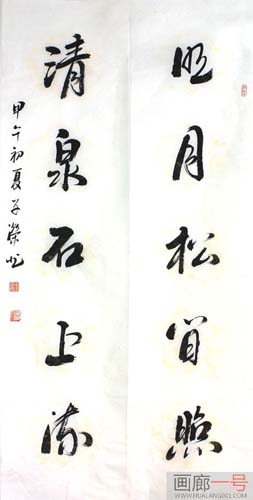 明月松间照
清泉石上流
甲午初夏
画廊一号
WWW.HUALANG001.COM